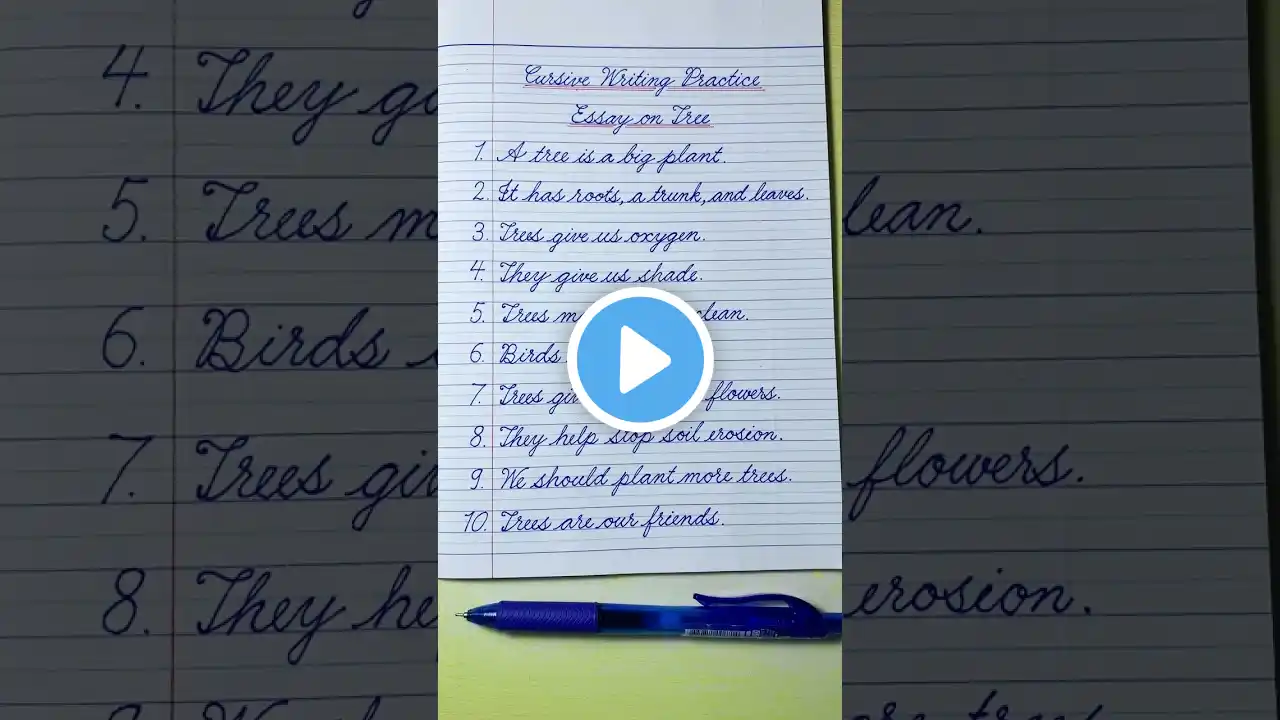 Cursive Writing Practice
Essay on Tree
1. A tree is a big plant.
2. It has roots, a trunk, and leaves.
3. Trees give us oxygen.
4. They give us shade.
5. Trees m clean.
6. Birds
7. Trees giv flowers.
8. They help stop soil erosion.
9. We should plant more trees.
10. Trees are our friends.